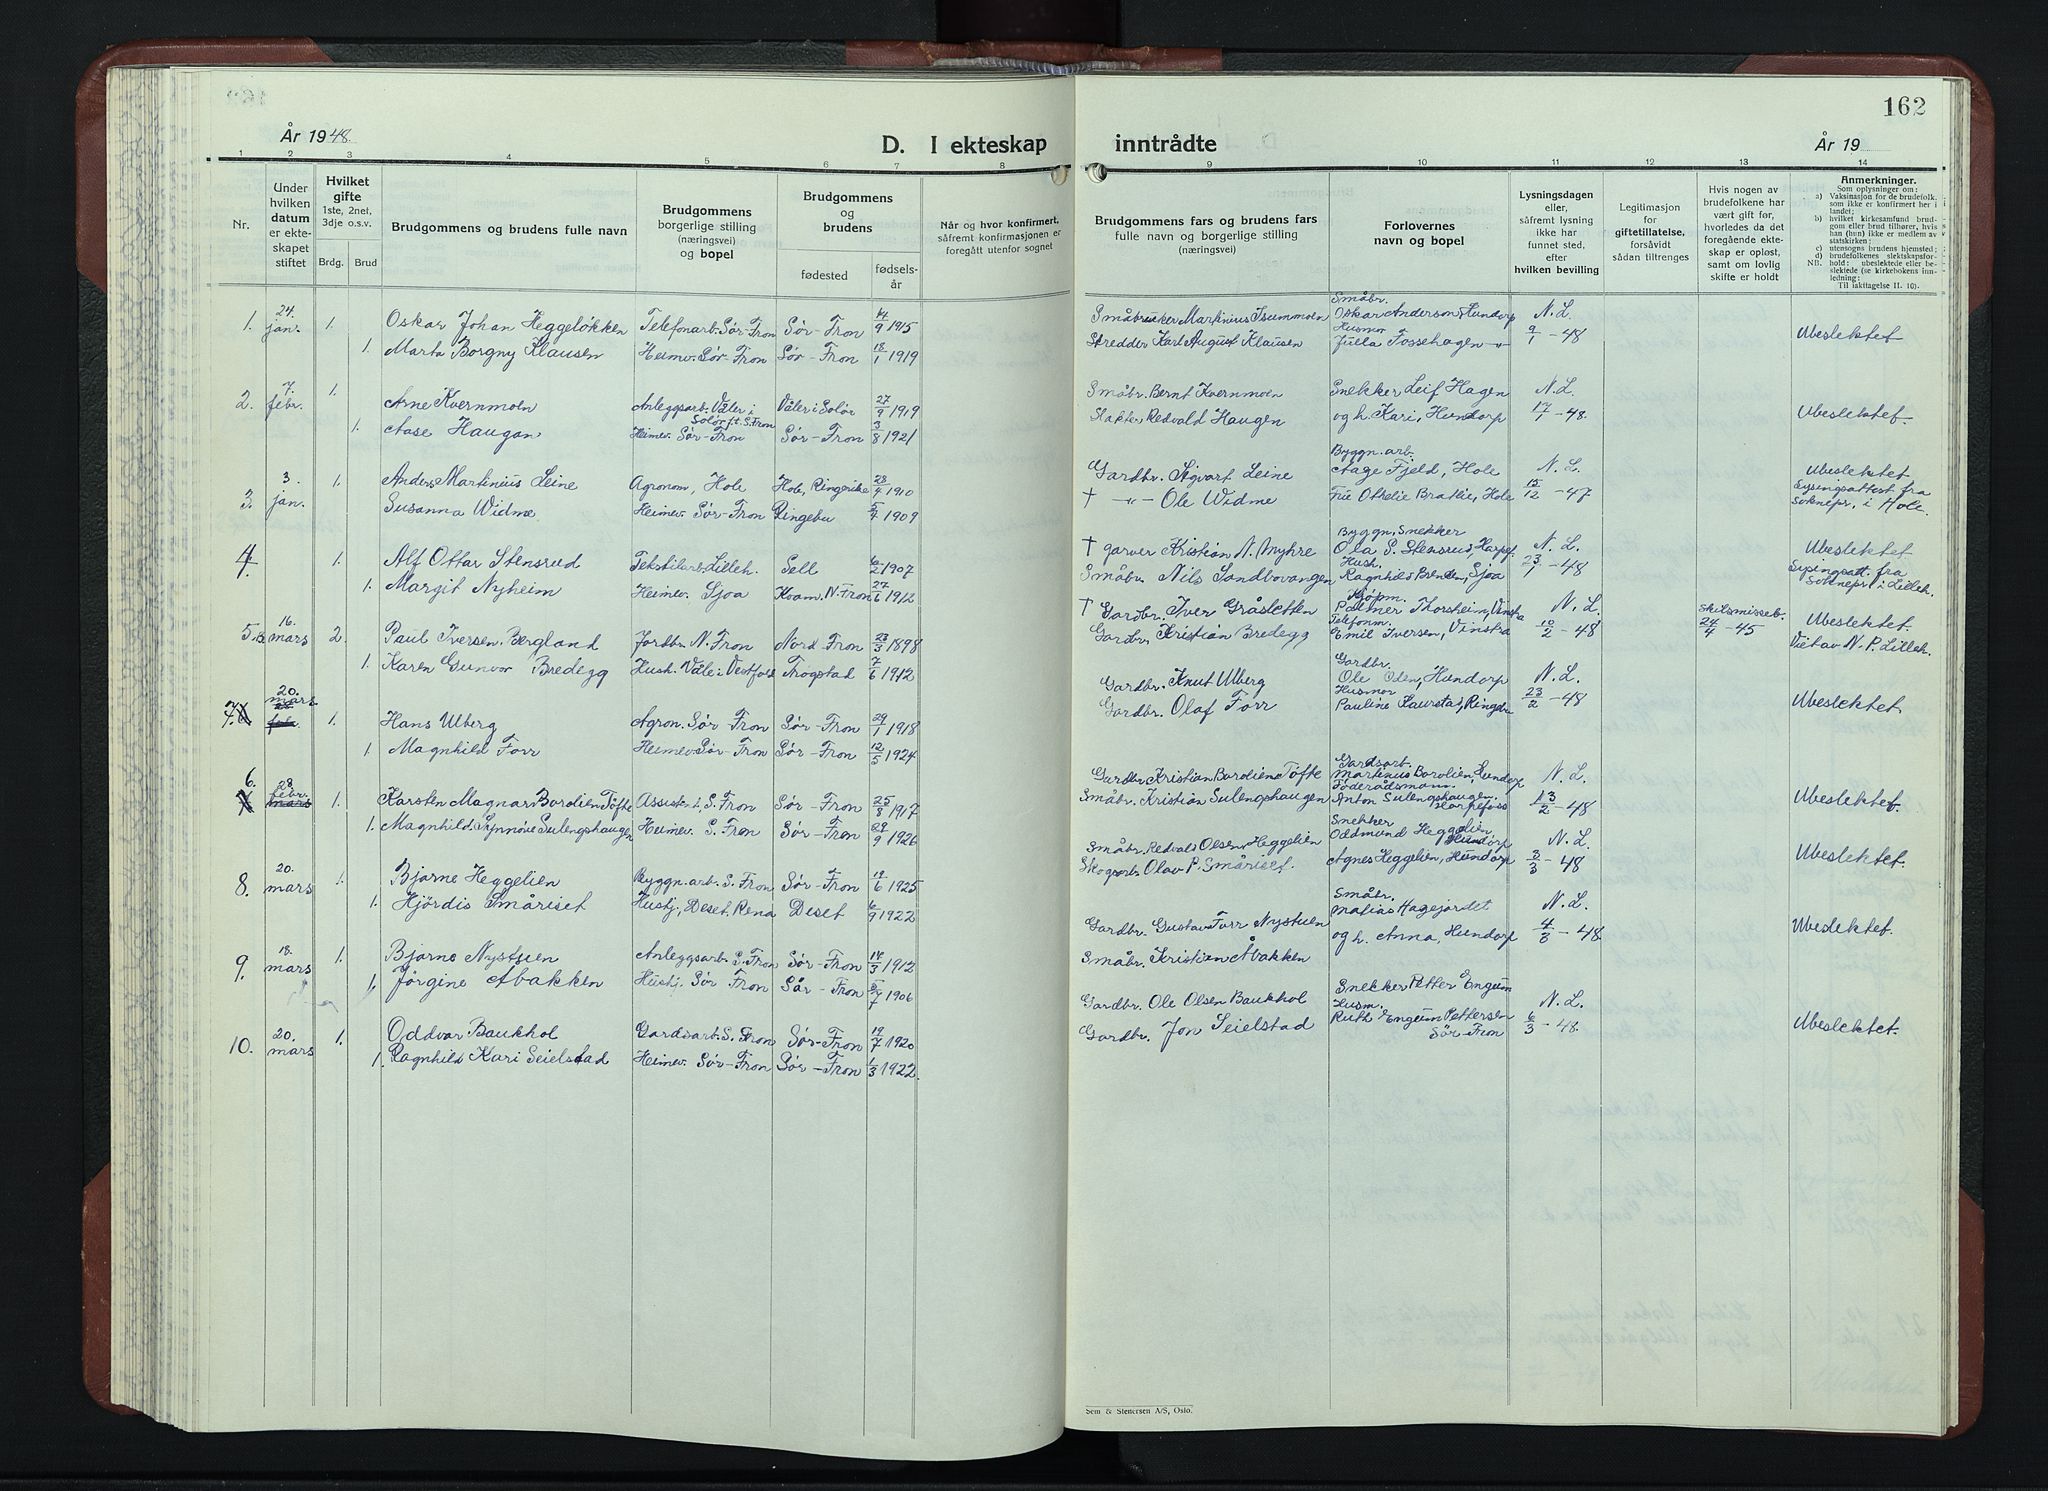 År 1948.
D. I ekteskap
1 2 3 4 5 6 7 8
Nr.
Under hvilken datum er ekteskapet stiftet
Hvilket gifte
1ste, 2net, 3dje o.s.v.
Brdg. Brud
Brudgommens og brudens fulle navn
Brudgommens borgerlige stilling (næringsvei) og bopel
Brudgommens og brudens
fødested
fødselsår
Når og hvor konfirmert, såfremt konfirmasjonen er foregått utenfor sognet
1. 24. jan. 1. Oskar Johan Heggeløkken Telefonarb. Sør-Fron Sør-Fron 14/9 1915
1. Marta Borgny Klausen Heimev. Sør-Fron Sør-Fron 18/1 1919
2. 7. febr. 1. Arne Kvernmoen Anleggsarb. Våler i Solør f.t. S. Fron Våler i Solør 27/9 1919
1. Aase Haugen Heimev. Sør-Fron Sør-Fron 3/8 1921
3. 3. jan. 1. Anders Martinius Leine Agronom, Hole Hole, Ringerike 28/4 1910
Susanna Widme Heimev. Sør-Fron Ringebu 1909
4. 1. Alf Ottar Stensrud Tekstilarb. Lilleh. Sell 1907
1. Margit Nyheim Heimev. Sjoa Kvam, N-Fron 27/6 1912
5. 16. mars 2. Paul Iversen Bergland Jordbr. N. Fron Nord-Fron 23/3 1898
1. Karen Gunvor Bredegg Hush. Våle i Vestfold Trøgstad 7/6 1912
7. 20. mars 1. Hans Ulberg Agron. Sør-Fron Sør-Fron 29/1 1918
1. Magnhild Forr Heimev. Sør-Fron Sør-Fron 12/5 1924
6. 28. febr. 1. Karsten Magnar Bordlien Tofte Assistent, S. Fron Sør-Fron 25/8 1917
1. Magnhild Synnøve Sulengshaugen Heimev. S. Fron Sør-Fron 29/9 1926
8. 20. mars 1. Bjarne Heggelien Byggn.arb. S. Fron Sør-Fron 19/6 1925
1. Hjördis Småriset Hushj., Deset, Rena Deset 6/9 1922
9. 18. mars 1. Bjarne Nystuen Anleggsarb. S. Fron Sør-Fron 14/3 1912
1. Jörgine Åbakken Hushj. Sør Fron Sør-Fron 1906
10. 20. mars 1. Oddvar Baukhol Gardsarb. S. Fron Sør-Fron 19/7 1920
1. Ragnhild Kari Seielstad Heimev. Sør-Fron Sør-Fron 1/3 1922.
162
inntrådte
År 19
9 10 11 12 13 14
Brudgommens fars og brudens fars fulle navn og borgerlige stilling (næringsvei)
Forlovernes navn og bopel
Lysningsdagen eller, såfremt lysning ikke har funnet sted, efter hvilken bevilling
Legitimasjon for giftetillatelse, forsåvidt sådan tiltrenges
Hvis nogen av brudefolkene har vært gift før, hvorledes da det foregående ekteskap er opløst, samt om lovlig skifte er holdt
Anmerkninger.
Som oplysninger om:
a) Vaksinasjon for de brudefolk. som ikke er konfirmert her i landet;
b) hvilket kirkesamfund brudgom eller brud tilhører, hvis han (hun) ikke er medlem av statskirken;
c) utensogns brudens hjemsted;
d) brudefolkenes slektskapsforhold: ubeslektede eller beslektede (se kirkebokens innledning;
NB. Til iakttagelse II. 10).
Småbruker Martinius Isummoen Småbr. Oskar Anderson, Hundorp N. L. 9/1 - 48 Ubeslektet
Skredder Karl August Klausen Husmor Julla Fossehagen -"-
Småbr. Bernt Kvernmoen Snekker Leif Hagen N. L. 17/1 - 48. Ubeslektet
Slakter Redvald Haugen og h. Kari, Hundorp
Gardbr. Sigvart Leine Byggn. arb. Aage Fjeld, Hole N. L. 15/12 - 47 Ubeslektet
† -"- Ole Widme Fru Othelie Bratlie, Hole Lysingsattest fra Soknepr. i Hole.
† garver Kristian N. Myhre Byggn. Snekker Ola P. Stensrud, Harpef. N. L. 23/1 - 48 Ubeslektet
Småbr. Nils Sandbovangen Hush. Ragnhild Brenden, Sjoa Lysingsatt. fra Soknepr. i Lilleh.
† Gardbr. Iver Gråsletten Kjøpm. Palmer Thorsheim, Vinstra N. L. 10/2 - 48 Skilsmisseb. 24/4 - 45 Ubeslektet
Gardbr. Kristian Bredegg Telefonm. Emil Iversen, Vinstra Viet av N. P. Lilleh.
Gardbr. Knut Ulberg Gardbr. Ole Oden, Hundorp N. L. 23/2 - 48 Ubeslektet.
Gardbr. Olaf Forr Husmor Pauline Kauretad, Ringebu
Gardbr. Kristian Bordlien Tofte Gardsarb. Martinus Bordlien, Hundorp N. L. 13/2 - 48 Ubeslektet.
Småbr. Kristian Sulengshaugen Föderådsmann. Anton Sulengshaugen. Harpefoss
Småbr. Redvald Olsen Heggelien Snekker Oddmund Heggelien Hundorp N. L. 3/3 - 48 Ubeslektet.
Skogsarb. Olav P. Småriset. Agnes Heggelien, Hundorp
Gardbr. Gustav Forr Nystuen Småbr. Matias Hagejordet N. L. 4/3 - 48 Ubeslektet.
Småbr. Kristian Åbakken og h. Anna, Hundorp
Gardbr. Ole Olsen Baukhol Snekker Petter Engum N. L. 6/3 - 48. Ubeslektet.
Gardbr. Jon Seielstad Husm. Ruth Engum Pettersen Sør-Fron
Sem & Stenersen A/S, Oslo.